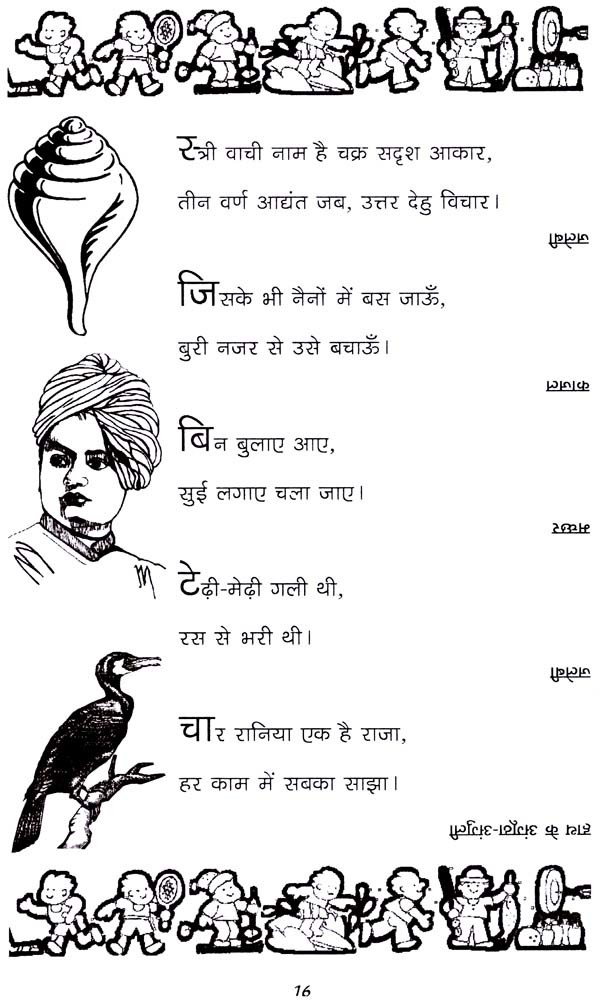 स्त्री वाची नाम है चक्र सदृश आकार,
तीन वर्ण आद्यंत जब, उत्तर देहु विचार।
जलेबी
जिसके भी नैनों में बस जाऊँ,
बुरी नजर से उसे बचाऊँ।
काजल
बिन बुलाए आए,
सुई लगाए चला जाए।
मच्छर
टेढ़ी-मेढ़ी गली थी,
रस से भरी थी।
जलेबी
चार रानिया एक है राजा,
हर काम में सबका साझा।
हाथ के अंगूठा-अंगुली
16